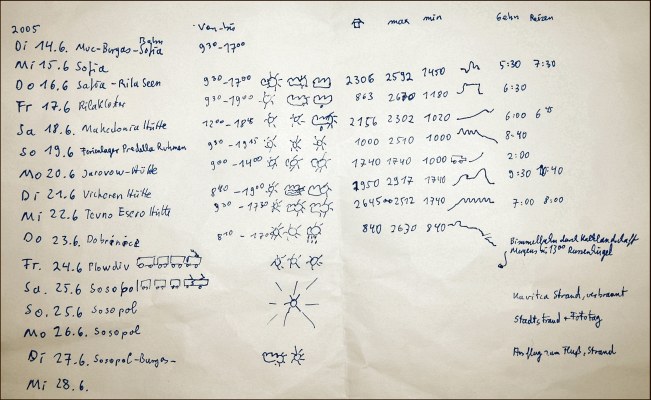 2005 Von-bis max min Gehn Reizen
Di 14.6. Muc-Burgas-Sofia Bahn 930-1700
Mi 15.6 Sofia
Do 16.6 Sofia-Rila Seen 930-1700 2306 2592 1450 5:30 7:30
Fr 17.6 Rilakloster 930-1900 863 2670 1180 6:30
Sa 18.6. Makedonia Hütte 1200-1845 2156 2302 1020 6:00
So 19.6 Ferienlager Predella 930-1915 1000 2510 1000 8:40
Mo 20.6 Jarovow-Hütte 900-1400 1740 1740 1000 2:00
Di 21.6 Vichoren Hütte 840-1900 1950 2917 1740 9:30
Mi 22.6 Tevno Esero Hütte 930-1730 2512 1740 7:00 8:00
Do 23.6. 810-1700 840 2630 840
Bimmelbahn durch
Morgens
Fr. 24.6 Plowdiv
Sa. 25.6 Sosopol
Strand, verbrannt
So. 25.6 Sosopol
Stadtstrand + Fototag
Mo 26.6. Sosopol
Di 27.6. Sosopol-Burgas-
Ausflug zum Fluß, Strand
Mi 28.6.